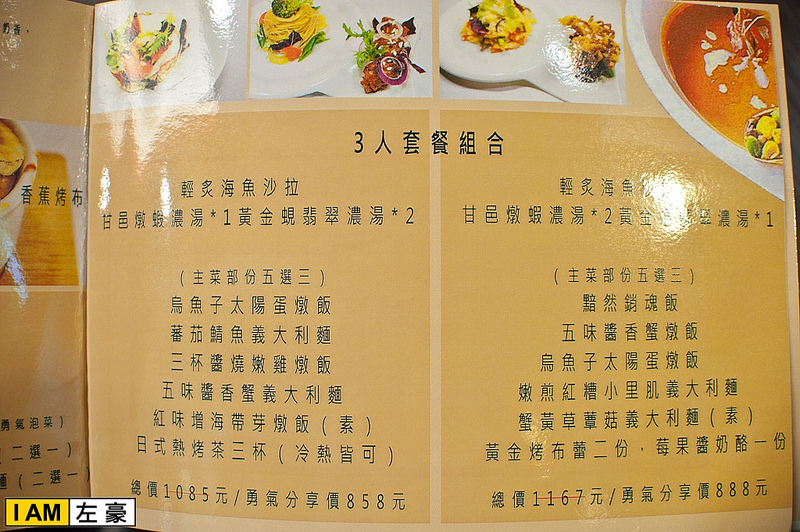 奶香,
香蕉烤布
勇氣泡菜)
(二選一)
麵(二選一)
3人套餐組合
輕炙海魚沙拉
甘邑燉蝦濃湯*1黃金蜆翡翠濃湯*2
(主菜部份五選三)
烏魚子太陽蛋燉飯
蕃茄鯖魚義大利麵
三杯醬燒嫩雞燉飯
五味醬香蟹義大利麵
紅味增海帶芽燉飯(素)
日式熱烤茶三杯(冷熱皆可)
總價1085元/勇氣分享價858元
輕炙海魚沙
甘邑燉蝦濃湯*2黃金 翠濃湯*1
(主菜部份五選三)
黯然銷魂飯
五味醬香蟹燉飯
烏魚子太陽蛋燉飯
嫩煎紅糟小里肌義大利麵
蟹黃草蕈菇義大利麵(素)
黃金烤布蕾二份,莓果醬奶酪一份
總價1167元/勇氣分享價888元
I AM 左豪